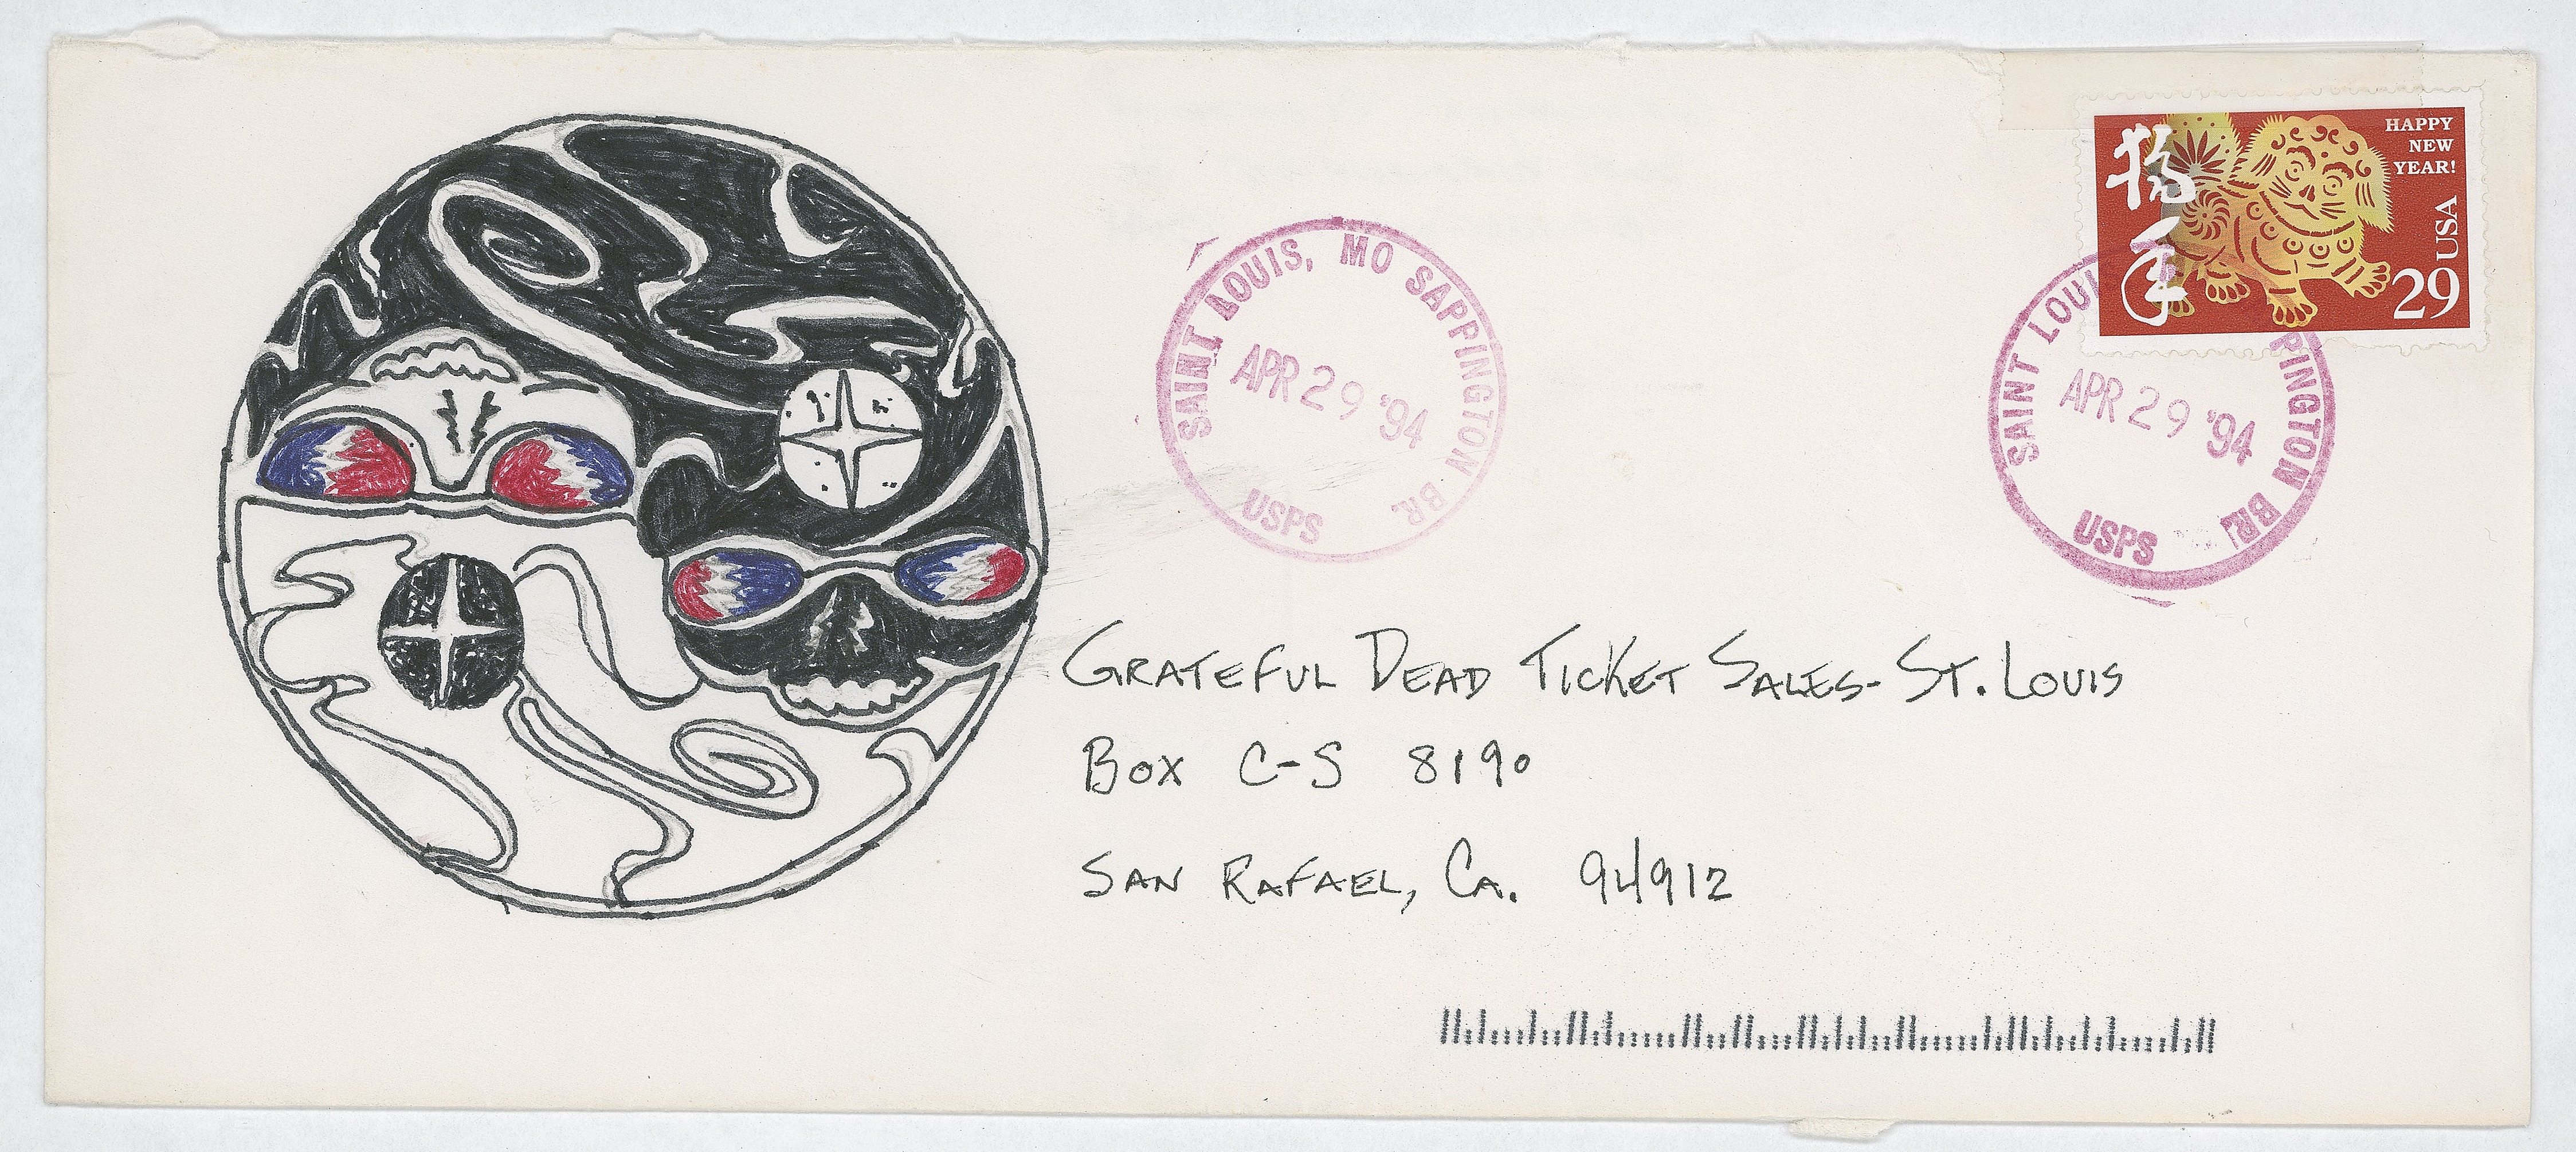 狗年
HAPPY
NEW
YEAR!
USA
29
SAINT LOUIS, MO SAPPINGTON BR.
APR 29 '94
USPS
SAINT LOUI PINGTON BR.
APR 29 '94
USPS
GRATEFUL DEAD TICKET SALES- ST. LOUIS
BOX C-S 8190
SAN RAFAEL, CA. 94912